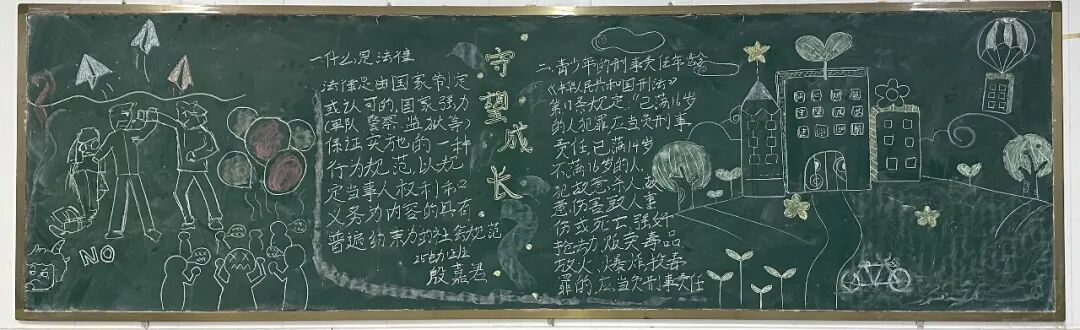 一什么是法律
法律是由国家制定
或认可的,国家强力
(军队 警察、监狱等)
保证实施的一种
行为规范,以规
定当事人权利和
义务为内容的具有
普遍约束力的社会规范
守望成长
二、青少年的刑事责任年龄
《中华人民共和国刑法》
第17条规定:"已满16岁
的人犯罪应当负刑事
责任已满14岁
不满16岁的人,
犯故意杀人故
意伤害致人重
伤或死亡强奸
抢劫、贩卖毒品
放火、爆炸投毒
罪的,应当负刑事责任
NO